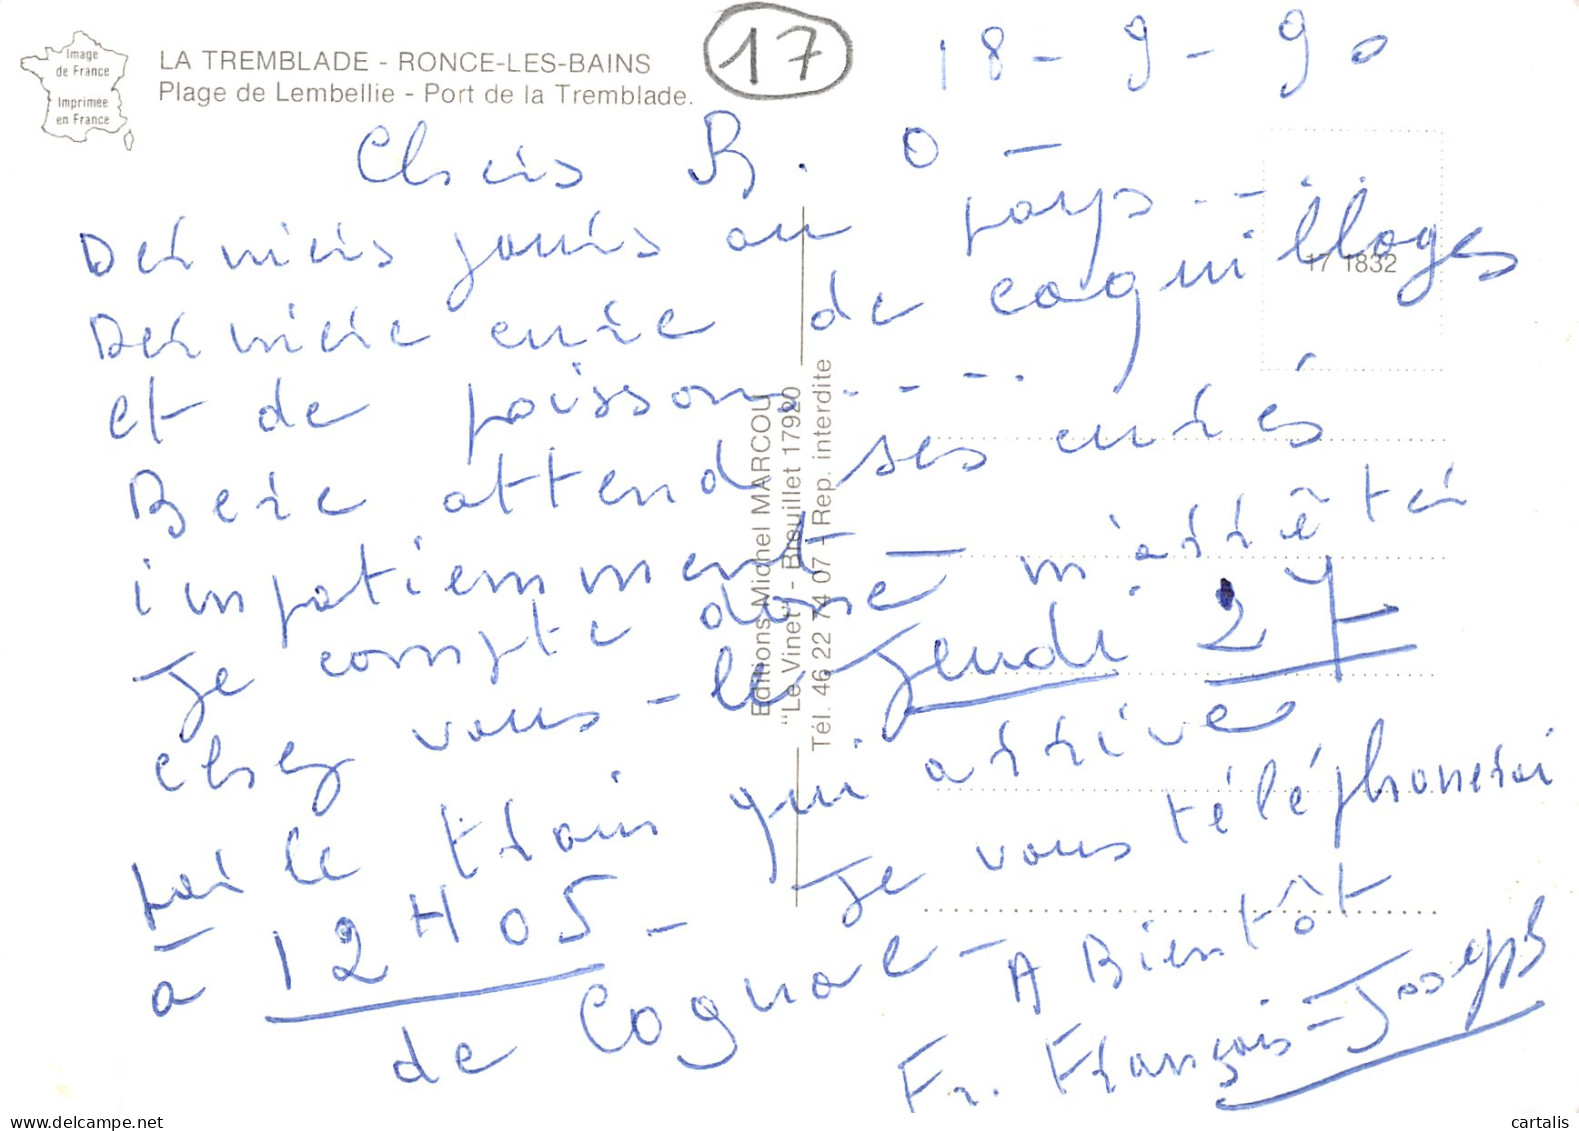 Image
de France
Imprimée
en France
LA TREMBLADE - RONCE-LES-BAINS
Plage de Lembellie - Port de la Tremblade.
17
18-9-90
Chers B. O -
Derniers jours au pays...
Dernière cure de coquillages
et de poissons....
Bere attend ses curés
impatiemment -
Je compte donc m'arrêter
chez vous - le Jeudi 27
par le train qui arrive
à 12H05 - Je vous téléphonerai
de Cognac - A Bientôt
Fr. François-Joseph
17 1832
Editions Michel MARCOU
"Le Vinet" - Breuillet 17920
Tél. 46 22 74 07 - Rep. interdite
www.delcampe.net
cartalis